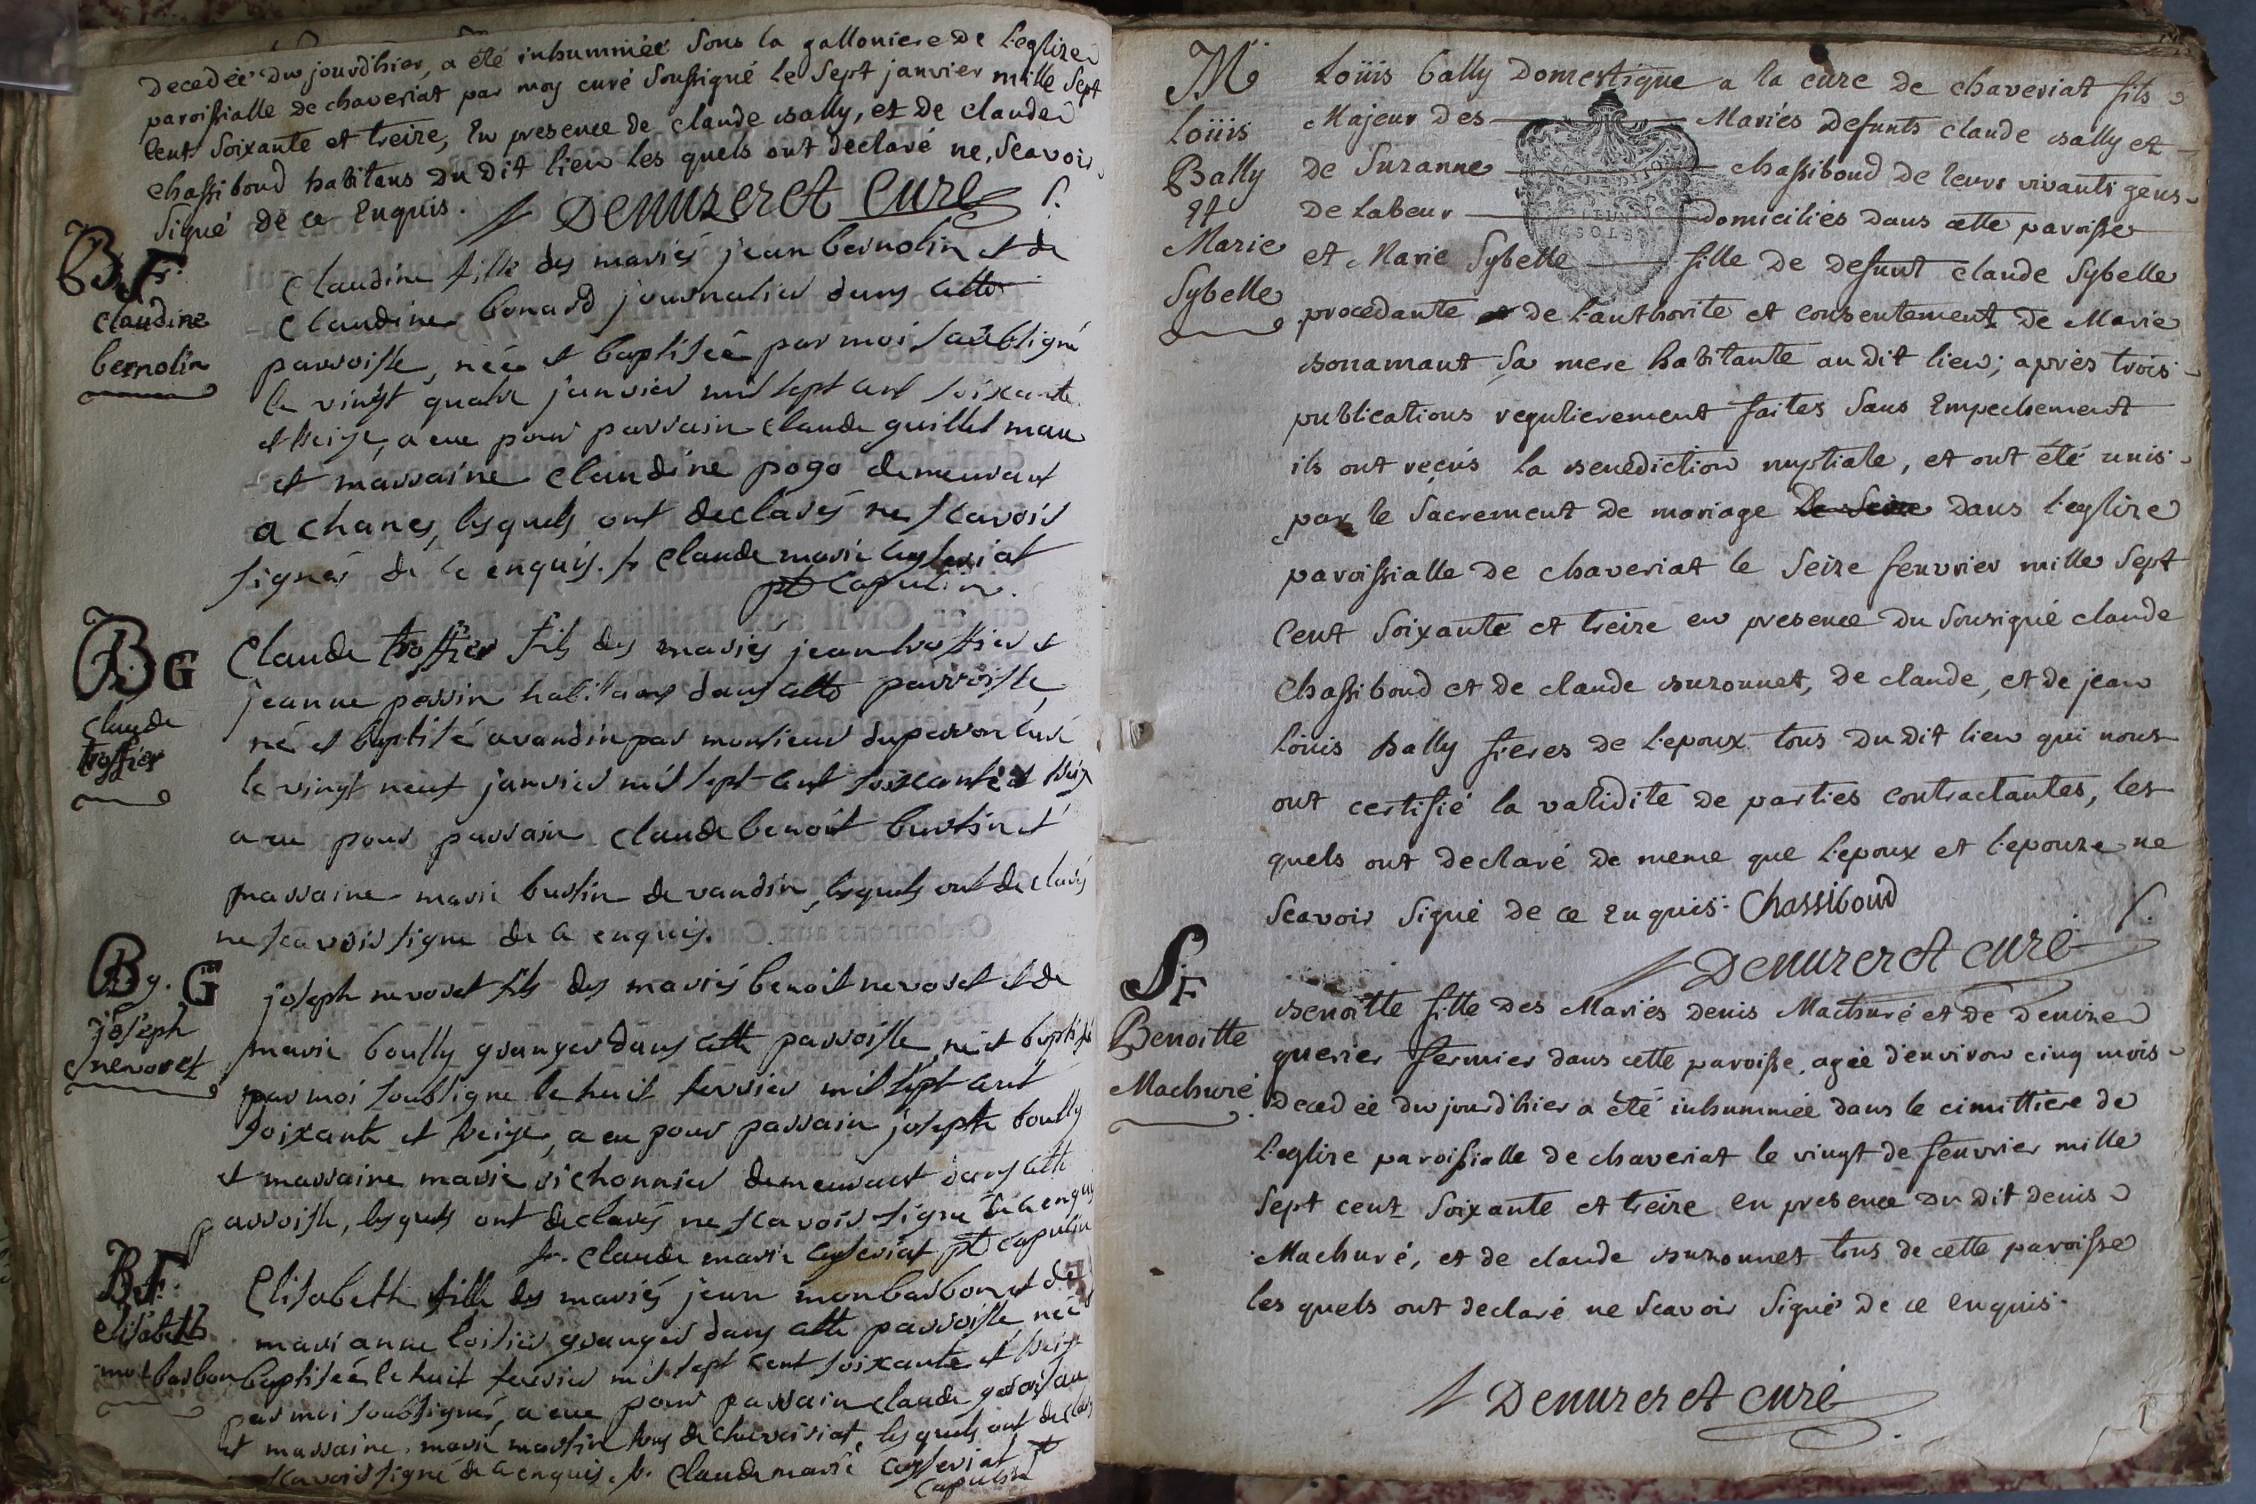 decedée du jourd'hier, a été inhummée sous la galloniere de l'eglize
paroissialle de chaveriat par moy curé soussigné le sept janvier mille sept
cent soixante et treize, en presence de claude bally, et de claude
chassiboud habitans du dit lieu les quels ont declaré ne scavoir
signé de ce enquis. Denuzeret curé
BF
claudine
bernolin
Claudine fille des mariés jean bernolin et de
Claudine bonard journalier dans cette
parroisse, née et baptisée par moi soubsigné
le vingt quatre janvier mil sept cent soixante
et treize, a eue pour parrain claude guillet
et marraine claudine pogo demeurant
a chanes, lesquels ont declarés ne scavoir
signés de ce enquis. fr claude marie
ptre capucin.
BG
claude
troffier
Claude troffier fils des mariés jean troffier et
jeanne perrin habitans dans cette parroisse,
né et baptisé a vandin par monsieur duperron curé
le vingt neuf janvier mil sept cent soixante et treize
a eu pour parrain claude benoit burtin et
marraine marie burtin de vandin, lesquels ont declarés
ne scavoir signe de ce enquis.
Bg. G
joseph
nevoret
joseph nevoret fils des mariés benoit nevoret et de
marie boully granger dans cette parroisse, né et baptisé
par moi soubsigne le huit fevrier mil sept cent
soixante et treize, a eu pour parrain joseph boully
et marraine marie vichonnier demeurant dans cette
parroisse, lesquels ont declarés ne scavoir signe de ce enquis
fr. claude marie ptre capucin
BF
elisabeth
monbarbon
Elisabeth fille des mariés jean monbarbon et de
marianne loisier granger dans cette parroisse née
baptisée le huit fevrier mil sept cent soixante et treize
par moi soubsigné, a eue pour parrain claude
et marraine marie martin tous de chaveiriat, lesquels ont declarés
scavoir signé de ce enquis. fr. claude marie ptre
capucin
M
Loüis
Bally
Et
Marie
Sybelle
Loüis bally domestique a la cure de chaveriat fils
Majeur des Mariés defunts claude bally et
de Suzanne chassiboud de leurs vivants gens
de labeur domiciliés dans cette paroisse
et Marie Sybelle fille de defunt claude Sybelle
procedante de l'authorite et consentement de Marie
bonamant sa mere habitante au dit lieu; après trois
publications regulierement faites sans Empechement
ils ont reçus la benediction nuptiale, et ont été unis
par le sacrement de mariage dans l'eglize
paroissialle de chaveriat le seize feuvrier mille sept
cent soixante et treize en presence du sousigné claude
chassiboud et de claude buzonnet, de claude, et de jean
loüis bally freres de l'epoux tous du dit lieu qui nous
ont certifié la validite de parties contractantes, les
quels ont declaré de meme que l'epoux et l'epouze ne
scavoir signé de ce enquis. Chassiboud
Denuzeret curé
SF
Benoitte
Machuré
benoitte fille des Mariés denis Machuré et de denize
guerier fermier dans cette paroisse, agée d'environ cinq mois
decedée du jourd'hier a été inhummée dans le cimittiere de
l'eglize paroissialle de chaveriat le vingt de feuvrier mille
sept cent soixante et treize en presence du dit denis
Machuré, et de claude buzonnet tous de cette paroisse
les quels ont declaré ne scavoir signé de ce enquis.
Denuzeret curé